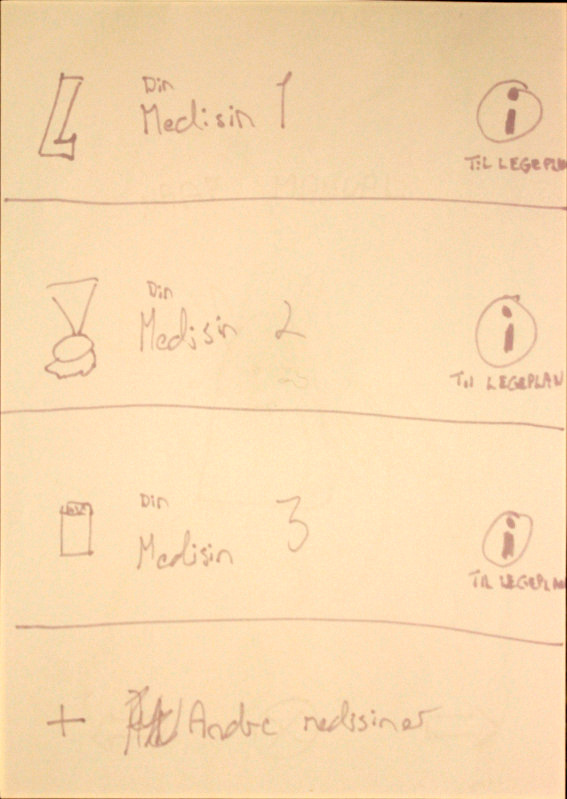 Din
Medisin 1
i
TIL LEGEPLAN
Din
Medisin 2
i
Til LEGEPLAN
Din
Medisin 3
i
TIL LEGEPLAN
+ Andre medisiner